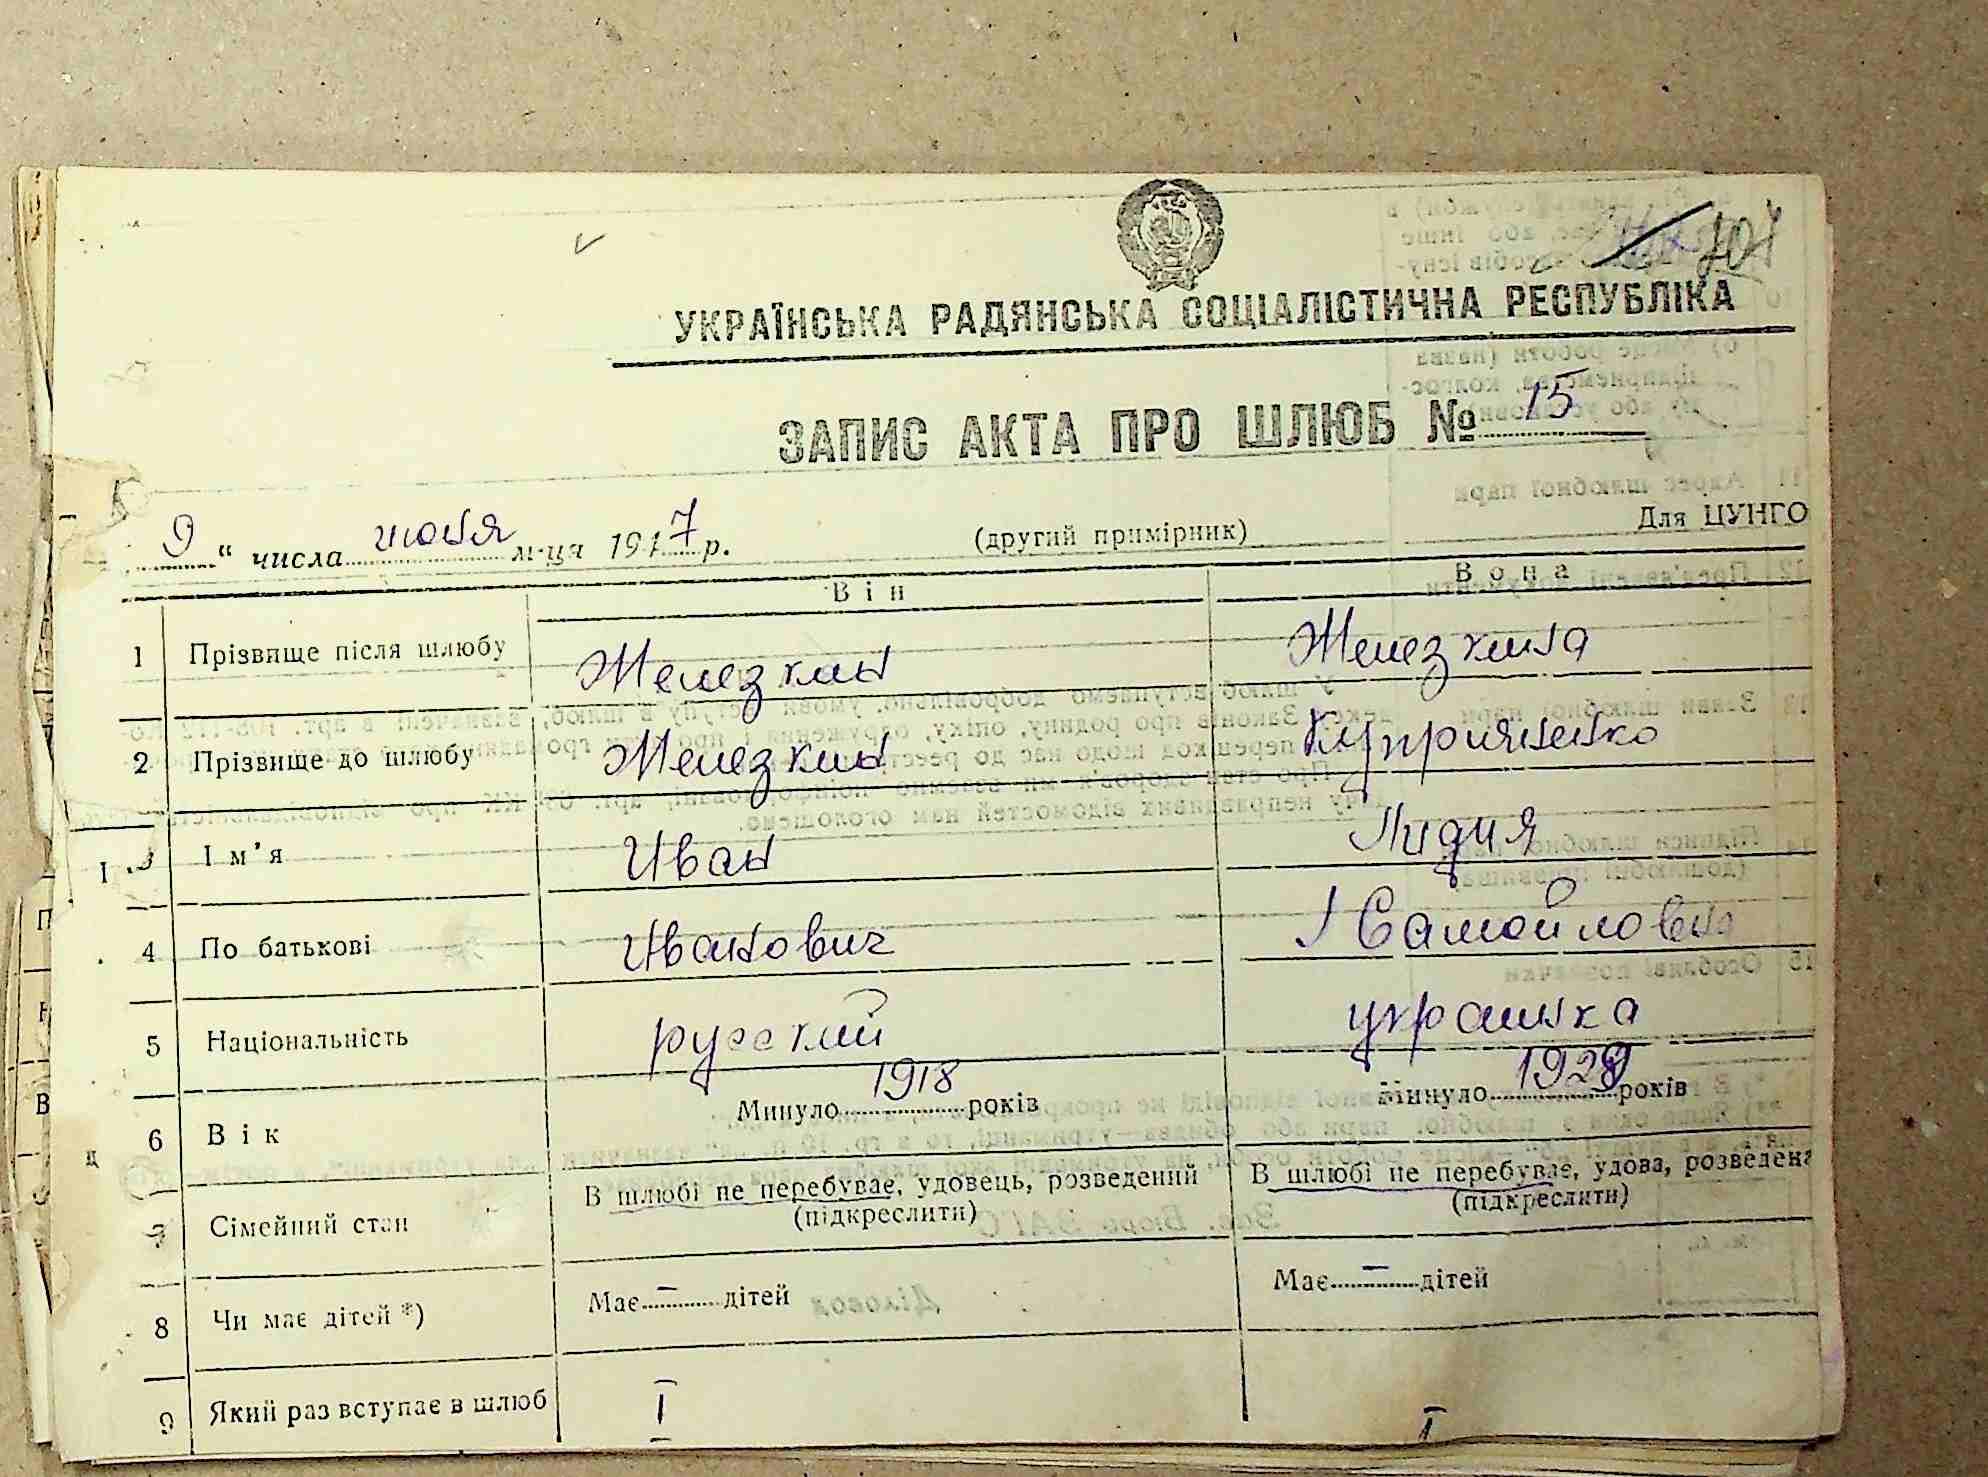 707
УКРАЇНСЬКА РАДЯНСЬКА СОЦІАЛІСТИЧНА РЕСПУБЛІКА
ЗАПИС АКТА ПРО ШЛЮБ № 15
9 “ числа июня м-ця 1947 р. (другий примірник) Для ЦУНГО
Він Вона
1 Прізвище після шлюбу Железкин Железкина
2 Прізвище до шлюбу Железкин Куприяненко
3 Ім’я Иван Лидия
4 По батькові Иванович Самойловна
5 Національність русский украинка
6 Вік Минуло 1918 років Минуло 1929 років
7 Сімейний стан В шлюбі не перебуває, удовець, розведений В шлюбі не перебуває, удова, розведена
(підкреслити) (підкреслити)
8 Чи має дітей *) Має – дітей Має – дітей
9 Який раз вступає в шлюб I I